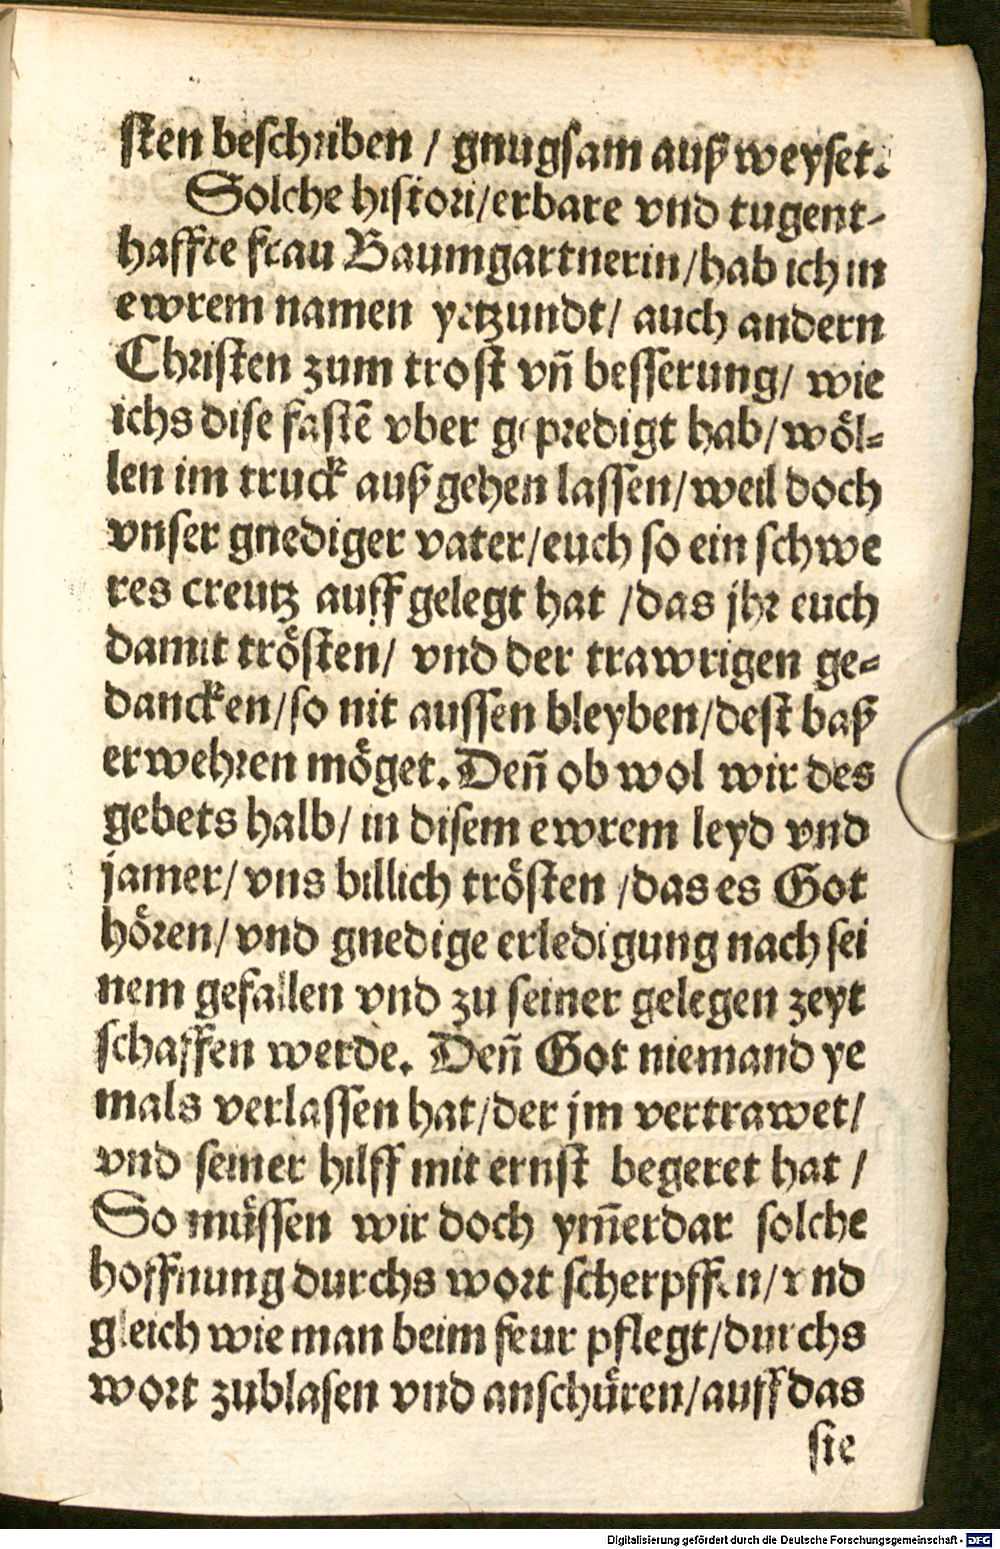 sten beschriben / gnugsam auß weyset.
Solche histori/erbare vnd tugent-
haffte frau Baumgartnerin/hab ich in
ewrem namen yetzundt/ auch andern
Christen zum trost vn̄ besserung/ wie
ichs dise fastē vber gepredigt hab/wöl-
len im truck außgehen lassen/weil doch
vnser gnediger vater/euch so ein schwe
res creutz auff gelegt hat /das jhr euch
damit trösten/ vnd der trawrigen ge-
dancken/so nit aussen bleyben/dest baß
erwehren möget. Den̄ ob wol wir des
gebets halb/ in disem ewrem leyd vnd
jamer/ vns billich trösten /das es Got
hören/ vnd gnedige erledigung nach sei
nem gefallen vnd zu seiner gelegen zeyt
schaffen werde. Den̄ Got niemand ye
mals verlassen hat/der jm vertrawet/
vnd seiner hilff mit ernst begeret hat /
So müssen wir doch ym̄erdar solche
hoffnung durchs wort scherpffen/vnd
gleich wie man beim feur pflegt/durchs
wort zublasen vnd anschüren/auff das
sie
Digitalisierung gefördert durch die Deutsche Forschungsgemeinschaft - DFG